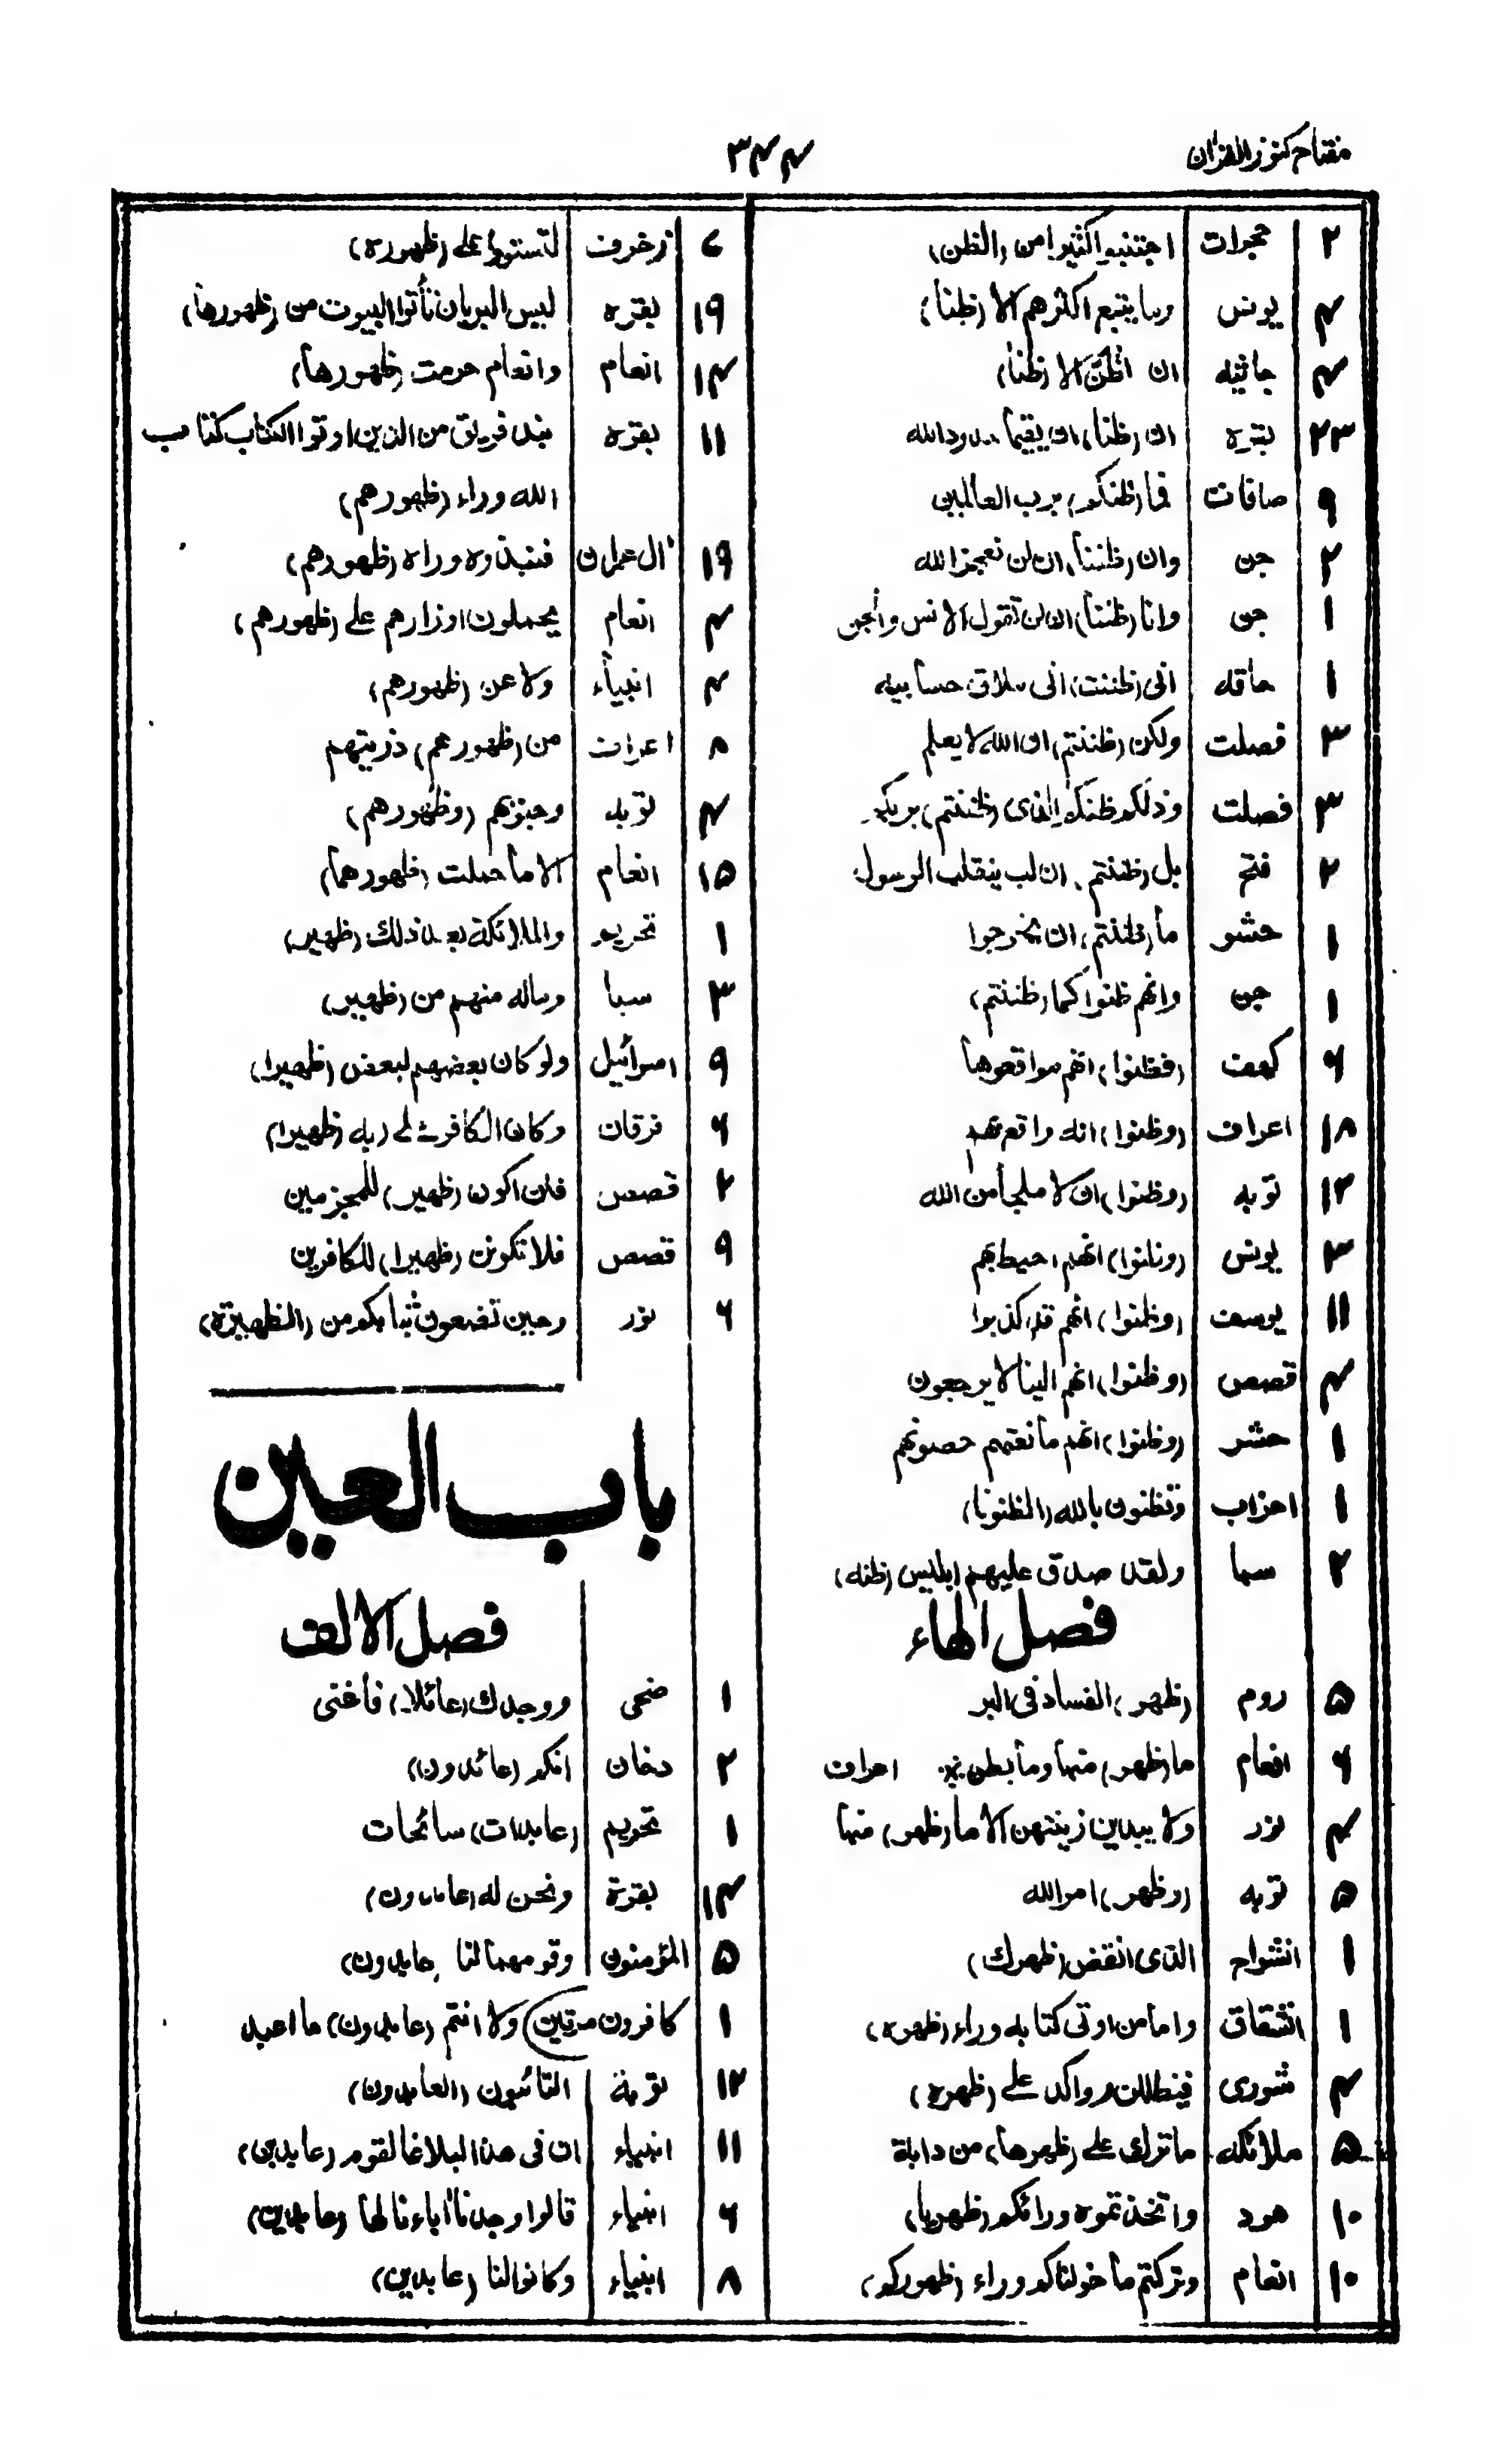 مفتاح كنوز القرآن
٣٤٤
٢ حجرات اجتنبوا كثيرا من (الظن)
٤ يونس وما يتبع اكثرهم الا (ظنا)
٤ جاثيه ان اظن الا (ظنا)
٢٣ بقره ان (ظنا) ان يقيما حدود الله
٩ صافات فما (ظنكم) برب العالمين
٢ جن وان (ظننا) ان لن نعجز الله
١ جن وانا (ظننا) ان لن تقول الانس والجن
١ حاقه انى (ظننت) انى ملاق حسابيه
٣ فصلت ولكن (ظننتم) ان الله لا يعلم
٣ فصلت وذلكم ظنكم الذى (ظننتم) بربكم
٢ فتح بل (ظننتم) ان لب ينقلب الرسول
١ حشر ما (ظننتم) ان يخرجوا
١ جن وانهم ظنوا كما (ظننتم)
٦ كهف (فظنوا) انهم مواقعوها
١٨ اعراف (وظنوا) انه واقع بهم
١٢ توبه (وظنوا) ان لا ملجأ من الله
٣ يونس (وظنوا) انهم احيط بهم
١١ يوسف (وظنوا) انهم قد كذبوا
٤ قصص (وظنوا) انهم الينا لا يرجعون
١ حشر (وظنوا) انهم مانعتهم حصونهم
١ احزاب وتظنون بالله (الظنونا)
٢ سبا ولقد صدق عليهم ابليس (ظنه)
فصل الهاء
٥ روم (ظهر) الفساد فى البر
٦ انعام ما (ظهر) منها وما بطن اعراف
٤ نور ولا يبدين زينتهن الا ما (ظهر) منها
٥ توبه (وظهر) امر الله
١ انشراح الذى انقض (ظهرك)
١ انشقاق واما من اوتى كتابه وراء (ظهره)
٤ شورى فيظللن رواكد على (ظهره)
٥ ملائكه ما ترك على (ظهرها) من دابة
١٠ هود واتخذتموه ورائكم (ظهريا)
١٠ انعام وتركتم ما خولناكم وراء (ظهوركم)
٤ زخرف لتستووا على (ظهوره)
١٩ بقره ليس البر بان تأتوا البيوت من (ظهورها)
١٤ انعام وانعام حرمت (ظهورها)
١١ بقره نبذ فريق من الذين اوتوا الكتاب كتاب
الله وراء (ظهورهم)
١٩ ال عمران فنبذوه وراء (ظهورهم)
٤ انعام يحملون اوزارهم على (ظهورهم)
٤ انبياء ولا عن (ظهورهم)
٨ اعراف من (ظهورهم) ذريتهم
٤ توبه وجنوبهم (وظهورهم)
١٥ انعام الا ما حملت (ظهورهما)
١ تحريم والملائكة بعد ذلك (ظهير)
٣ سبا وماله منهم من (ظهير)
٩ اسرائيل ولو كان بعضهم لبعض (ظهيرا)
٦ فرقان وكان الكافر على ربه (ظهيرا)
٢ قصص فلن اكون (ظهيرا) للمجرمين
٩ قصص فلا تكونن (ظهيرا) للكافرين
٦ نور وحين تضعون ثيابكم من (الظهيرة)
باب العين
فصل الالف
١ ضحى ووجدك (عائلا) فاغنى
٢ دخان انكم (عائدون)
١ تحريم (عابدات) سائحات
١٤ بقرة ونحن له (عابدون)
٥ المؤمنون وقومهما لنا عابدون)
١ كافرون مرتين ولا انتم (عابدون) ما اعبد
١٢ توبة التائبون (العابدون)
١١ انبياء ان فى هذا لبلاغا لقوم (عابدين)
٦ انبياء قالوا وجدنا اباءنا لها (عابدين)
٨ انبياء وكانوا لنا (عابدين)